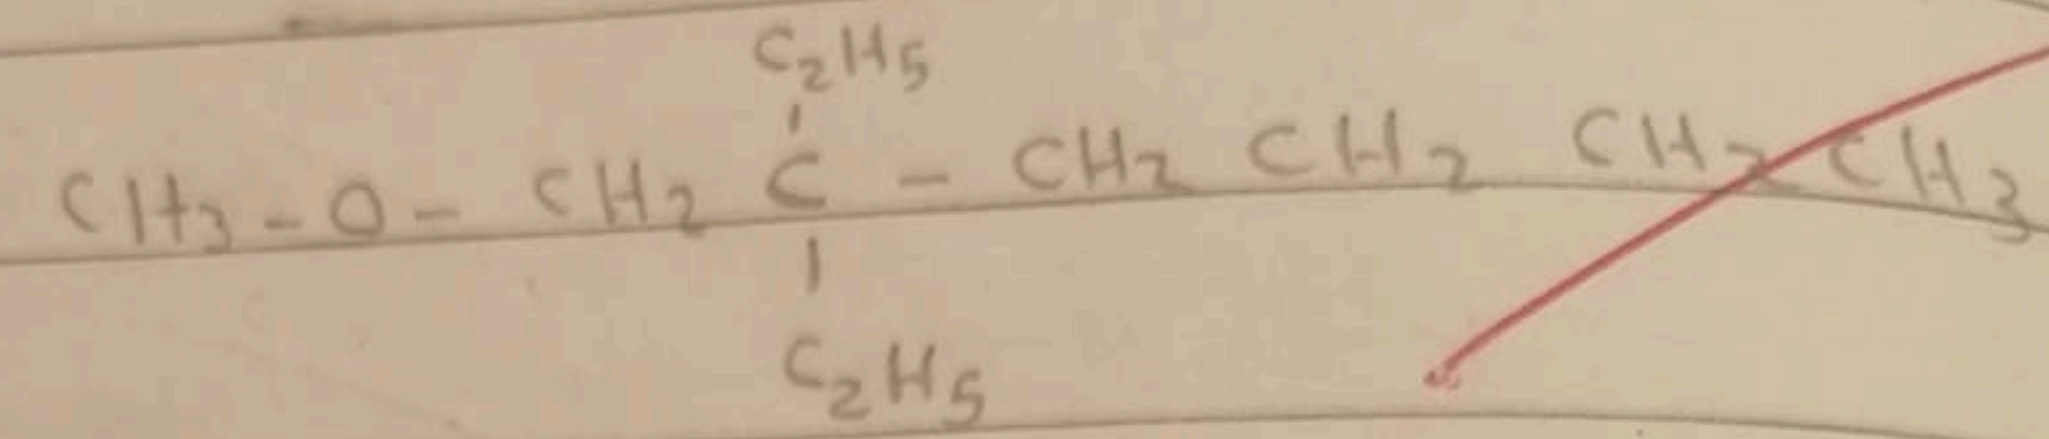 C2H5
CH3-O-CH2 C - CH2 CH2 CH2 CH3
C2H5